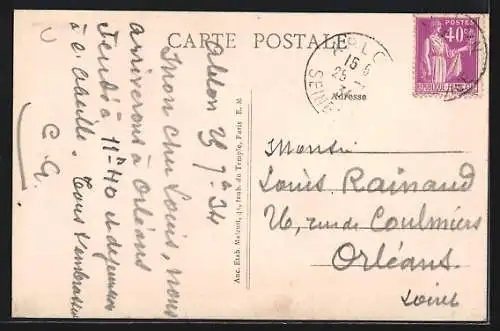 CARTE POSTALE
Ablon 25 7bre 34
Mon cher Louis, nous
arriverons à Orléans
à 11h40 et déjeuner
à l'Abeille. Tous t'embrassent
C. G.
Anc. Etab. Malcuit, 41, faub. du Temple, Paris E. M
Adresse
POSTES
40c
15
25
34
SEINE
Monsieur
Louis Rainaud
26, rue de Coulmiers
Orléans
Loiret